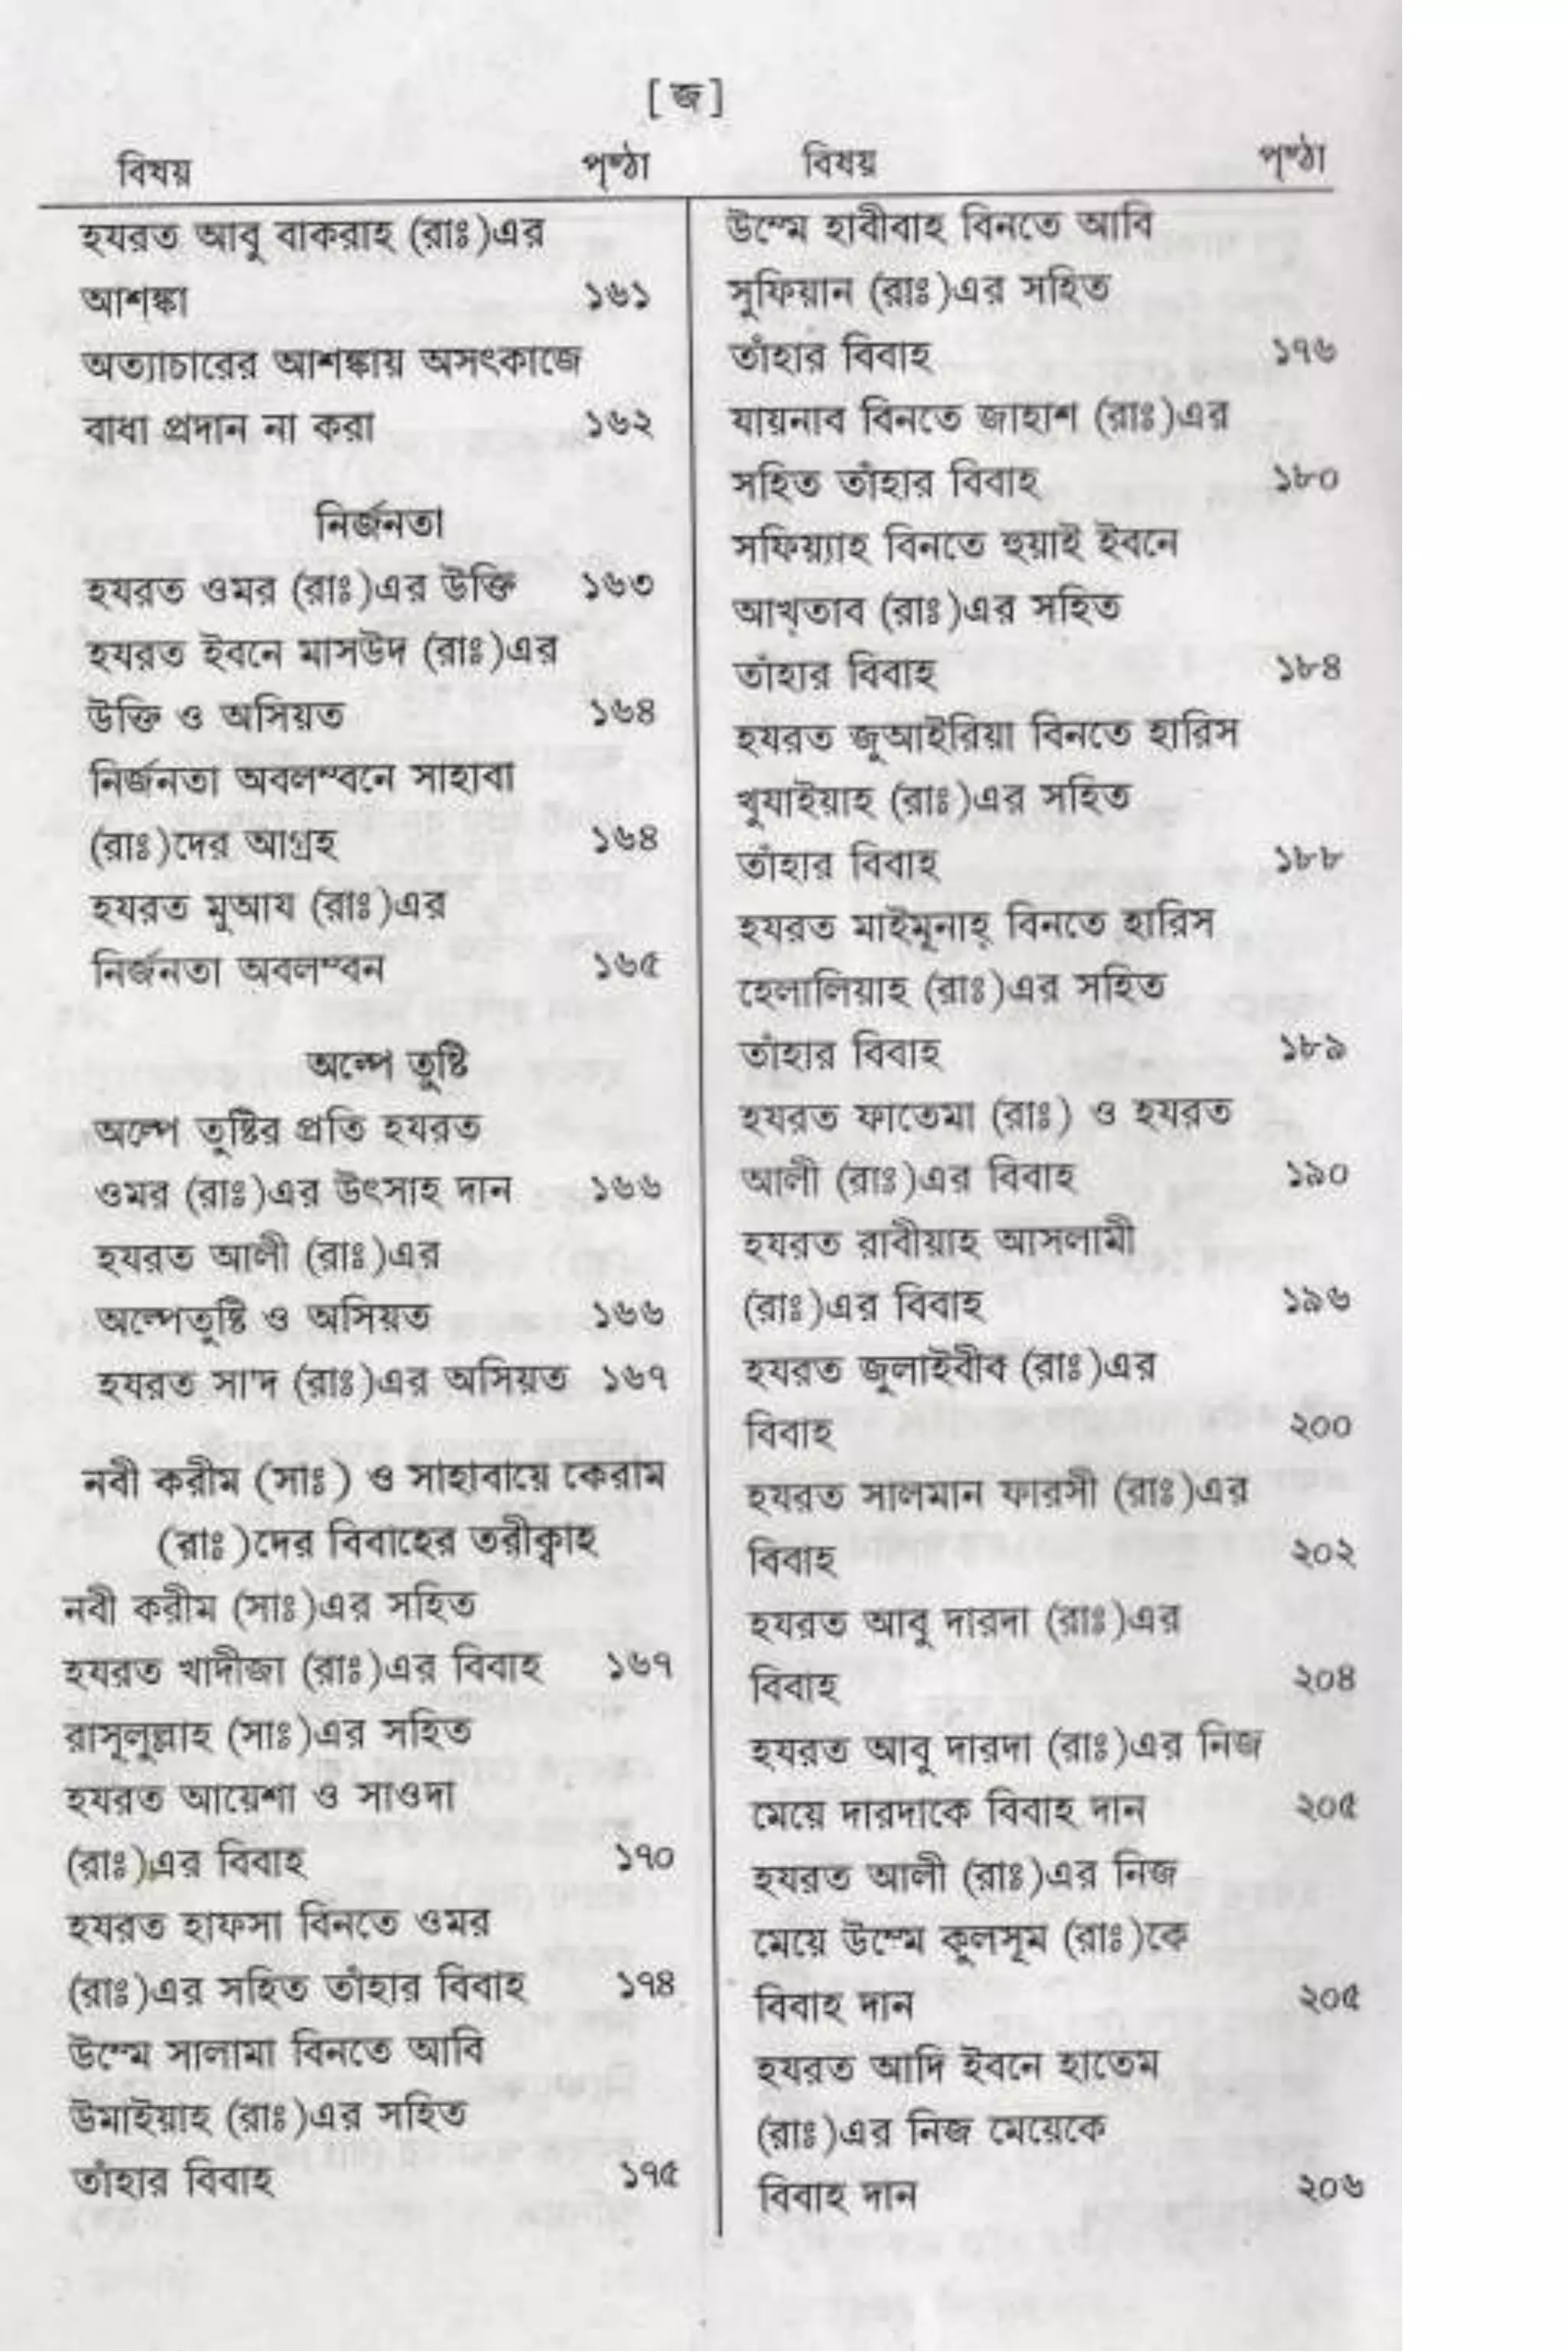 [ জ ]
বিষয় পৃষ্ঠা
হযরত আবু বাকরাহ (রাঃ)এর
আশঙ্কা ১৬১
অত্যাচারের আশঙ্কায় অসৎকাজে
বাধা প্রদান না করা ১৬২
নির্জনতা
হযরত ওমর (রাঃ)এর উক্তি ১৬৩
হযরত ইবনে মাসউদ (রাঃ)এর
উক্তি ও অসিয়ত ১৬৪
নির্জনতা অবলম্বনে সাহাবা
(রাঃ)দের আগ্রহ ১৬৪
হযরত মুআয (রাঃ)এর
নির্জনতা অবলম্বন ১৬৫
অল্পে তুষ্টি
অল্পে তুষ্টির প্রতি হযরত
ওমর (রাঃ)এর উৎসাহ দান ১৬৬
হযরত আলী (রাঃ)এর
অল্পেতুষ্টি ও অসিয়ত ১৬৬
হযরত সা'দ (রাঃ)এর অসিয়ত ১৬৭
নবী করীম (সাঃ) ও সাহাবায়ে কেরাম
(রাঃ)দের বিবাহের তরীক্বাহ
নবী করীম (সাঃ)এর সহিত
হযরত খাদীজা (রাঃ)এর বিবাহ ১৬৭
রাসূলুল্লাহ (সাঃ)এর সহিত
হযরত আয়েশা ও সাওদা
(রাঃ)এর বিবাহ ১৭০
হযরত হাফসা বিনতে ওমর
(রাঃ)এর সহিত তাঁহার বিবাহ ১৭৪
উম্মে সালামা বিনতে আবি
উমাইয়াহ (রাঃ)এর সহিত
তাঁহার বিবাহ ১৭৫
বিষয় পৃষ্ঠা
উম্মে হাবীবাহ বিনতে আবি
সুফিয়ান (রাঃ)এর সহিত
তাঁহার বিবাহ ১৭৬
যায়নাব বিনতে জাহাশ (রাঃ)এর
সহিত তাঁহার বিবাহ ১৮০
সফিয়্যাহ বিনতে হুয়াই ইবনে
আখ্‌তাব (রাঃ)এর সহিত
তাঁহার বিবাহ ১৮৪
হযরত জুআইরিয়া বিনতে হারিস
খুযাইয়াহ (রাঃ)এর সহিত
তাঁহার বিবাহ ১৮৮
হযরত মাইমূনাহ্ বিনতে হারিস
হেলালিয়াহ (রাঃ)এর সহিত
তাঁহার বিবাহ ১৮৯
হযরত ফাতেমা (রাঃ) ও হযরত
আলী (রাঃ)এর বিবাহ ১৯০
হযরত রাবীয়াহ আসলামী
(রাঃ)এর বিবাহ ১৯৬
হযরত জুলাইবীব (রাঃ)এর
বিবাহ ২০০
হযরত সালমান ফারসী (রাঃ)এর
বিবাহ ২০২
হযরত আবু দারদা (রাঃ)এর
বিবাহ ২০৪
হযরত আবু দারদা (রাঃ)এর নিজ
মেয়ে দারদাকে বিবাহ দান ২০৫
হযরত আলী (রাঃ)এর নিজ
মেয়ে উম্মে কুলসূম (রাঃ)কে
বিবাহ দান ২০৫
হযরত আদি ইবনে হাতেম
(রাঃ)এর নিজ মেয়েকে
বিবাহ দান ২০৬